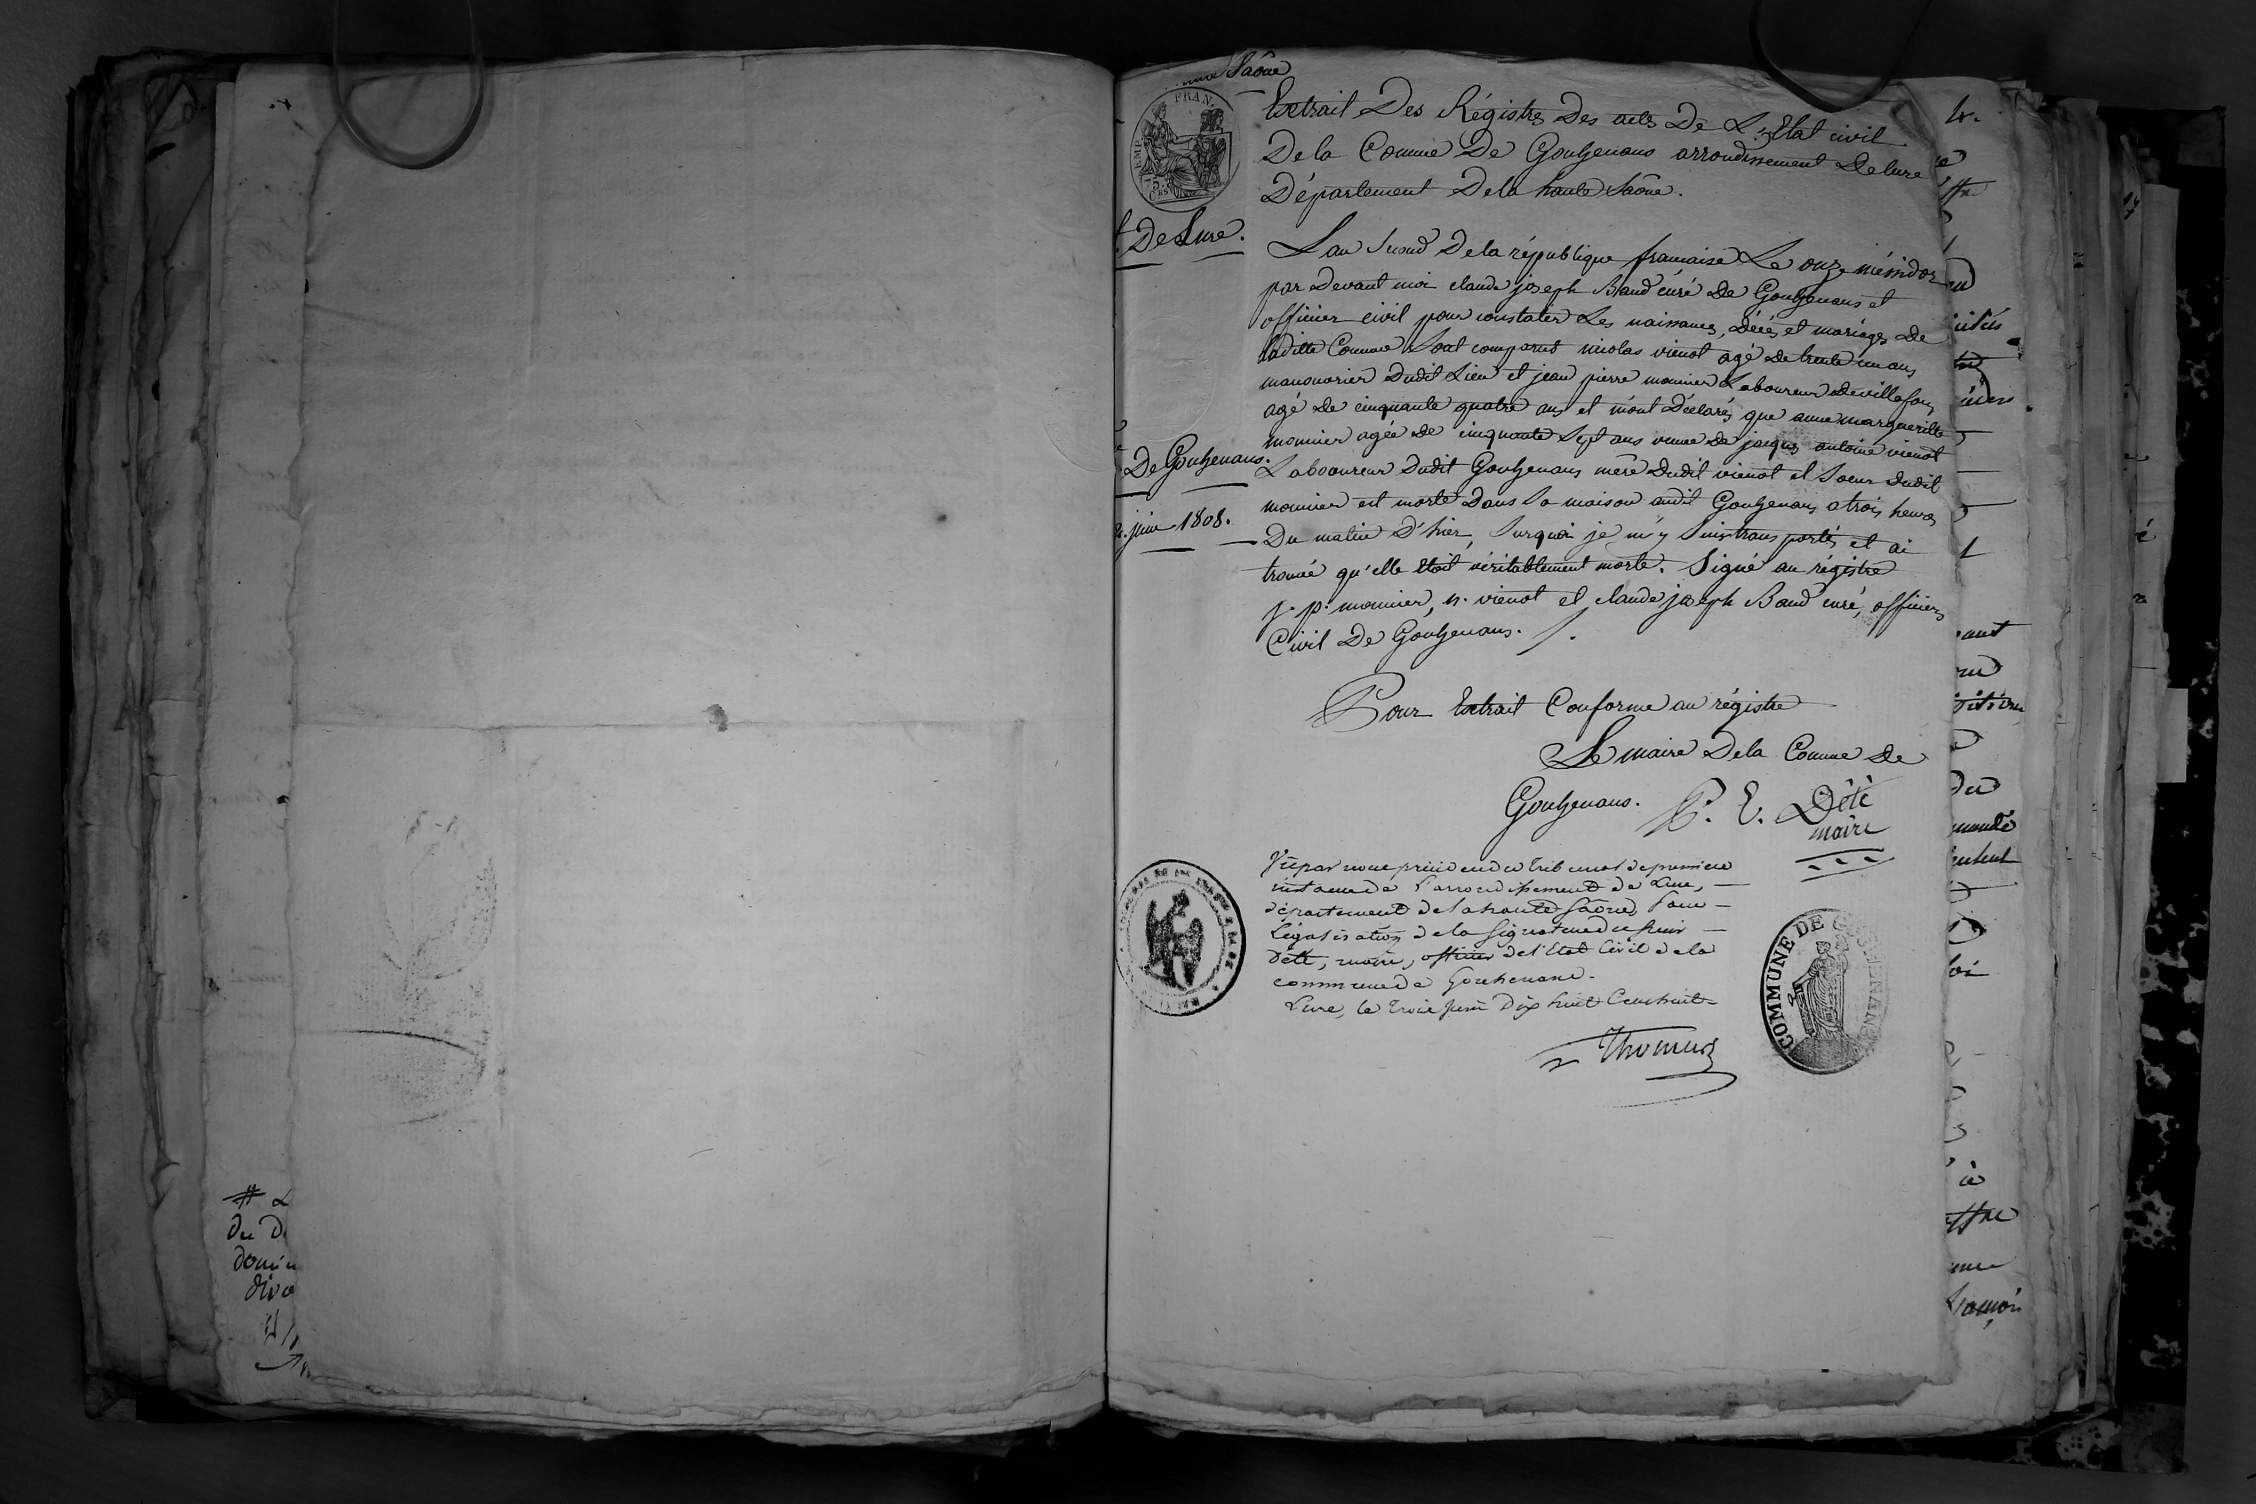 Saône
EMP. FRAN.
Extrait Des Régistres Des actes De L'Etat civil
De la Comune De Gouhenans arrondissement De lure
Département De la haute Saône.
De Lure.
L'an Second De la république francaise Le onze méssidor
par Devant moi claude joseph Baud curé De Gouhenans et
officier civil pour constater Les naissances, Décés et mariages De
laditte Comune Sont comparus nicolas vienot agé de trente un ans
manouvrier Dudit Lieu et jean pierre monnier Laboureur de villafans
agé De cinquante quatre ans et m'ont Déclarés que anne margueritte
monnier agée de cinquante Sept ans veuve de jacques antoine vienot
De Gouhenans.
Laboureur Dudit Gouhenans mère Dudit vienot et Soeur Dudit
monnier est morte Dans Sa maison audit Gouhenans a trois heures
juin 1808.
Du matin D'hier, Surquoi je m'y Suis transportés et ai
trouvée qu'elle Etoit véritablement morte. Signé au régistre
j. p. monnier, n. vienot et claude joseph Baud curé, officier
Civil De Gouhenans.
Pour Extrait Conforme au régistre
Le maire De la Comune De
Gouhenans. P. E. Dété
maire
Vu par nous président du tribunal de premiere
instance de l'arrondissement de Lure,
département de la haute Saône, pour
Légalisation de la Signature du Sieur
Dété, maire, officier de l'Etat Civil de la
commune de Gouhenans.
Lure, le trois juin Dix huit Cent huit
COMMUNE DE GOUHENANS